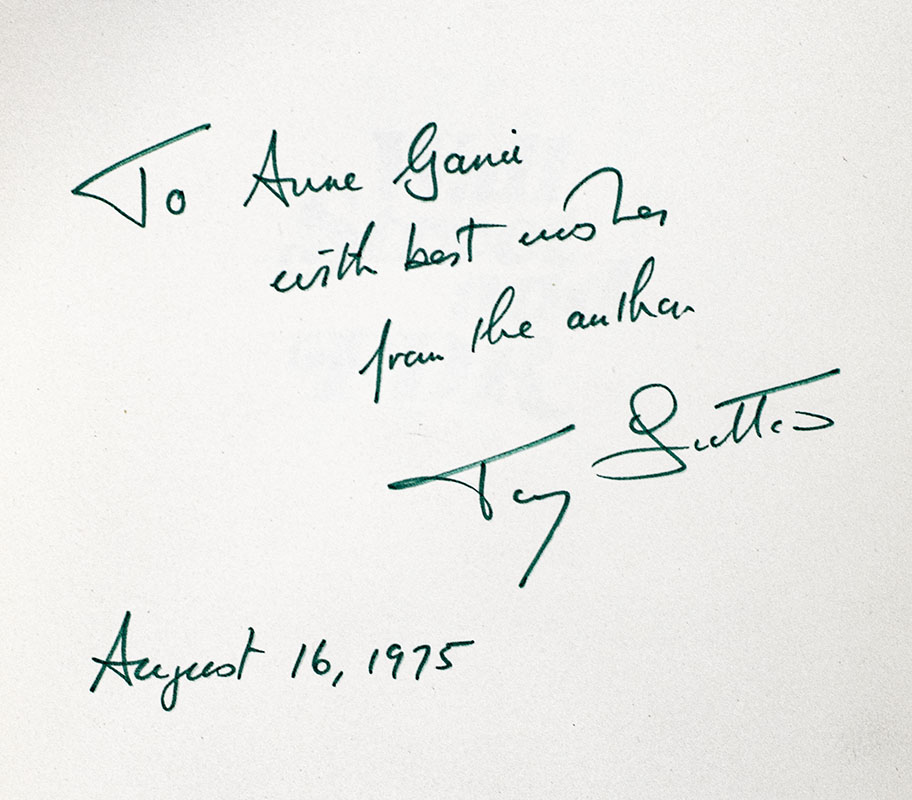 To Anne
with best wishes
from the author
Tony Sutton
August 16, 1975